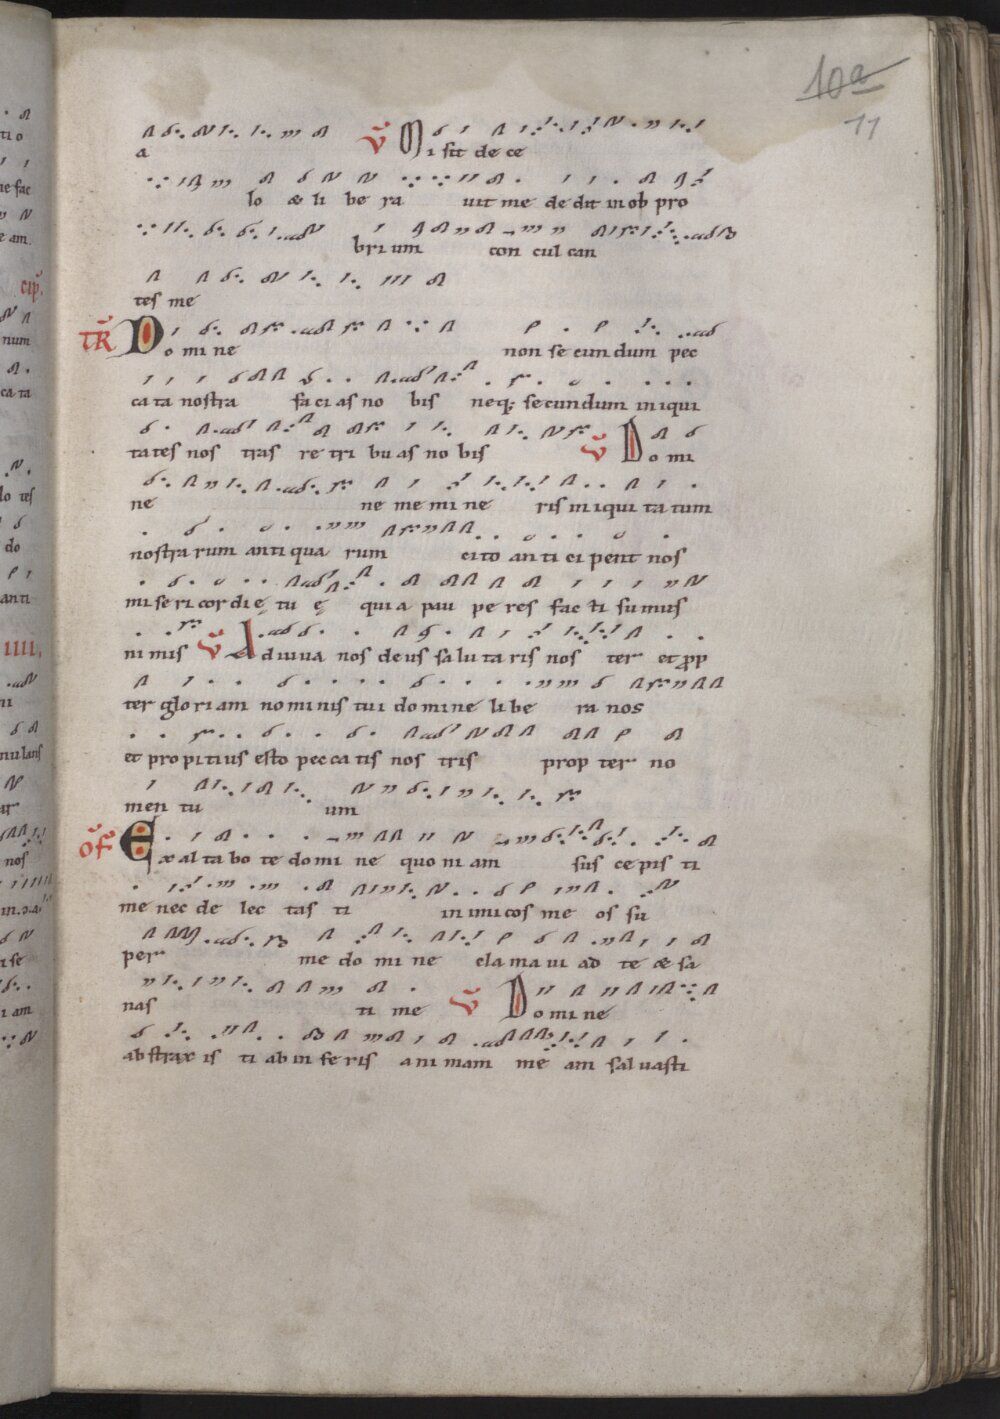 10a
11
a v̄ Mi sit de ce
lo & li be ra uit me de dit in ob pro
bri um con cul can
tes me
TR̄ Do mi ne non se cun dum pec
ca ta nostra fa ci as no bis neq; secundum in iqui
ta tes nos tras re tri bu as no bis v̄ Do mi
ne ne me mi ne ris in iqui ta tum
nostra rum anti qua rum cito an ti ci pent nos
mi se ri cor di ę tu ę qui a pau pe res fac ti su mus
ni mis v̄ A diuua nos de us sa lu ta ris nos ter et ꝓp
ter glo ri am no mi nis tu i do mi ne li be ra nos
et pro pi ti us esto pec ca tis nos tris prop ter no
men tu um
of̄ Ex al ta bo te do mi ne quo ni am sus ce pis ti
me nec de lec tas ti in imi cos me os su
per me do mi ne cla ma ui ad te & sa
nas ti me v̄ Do mi ne
ab strax is ti ab in fe ris a ni mam me am sal uasti